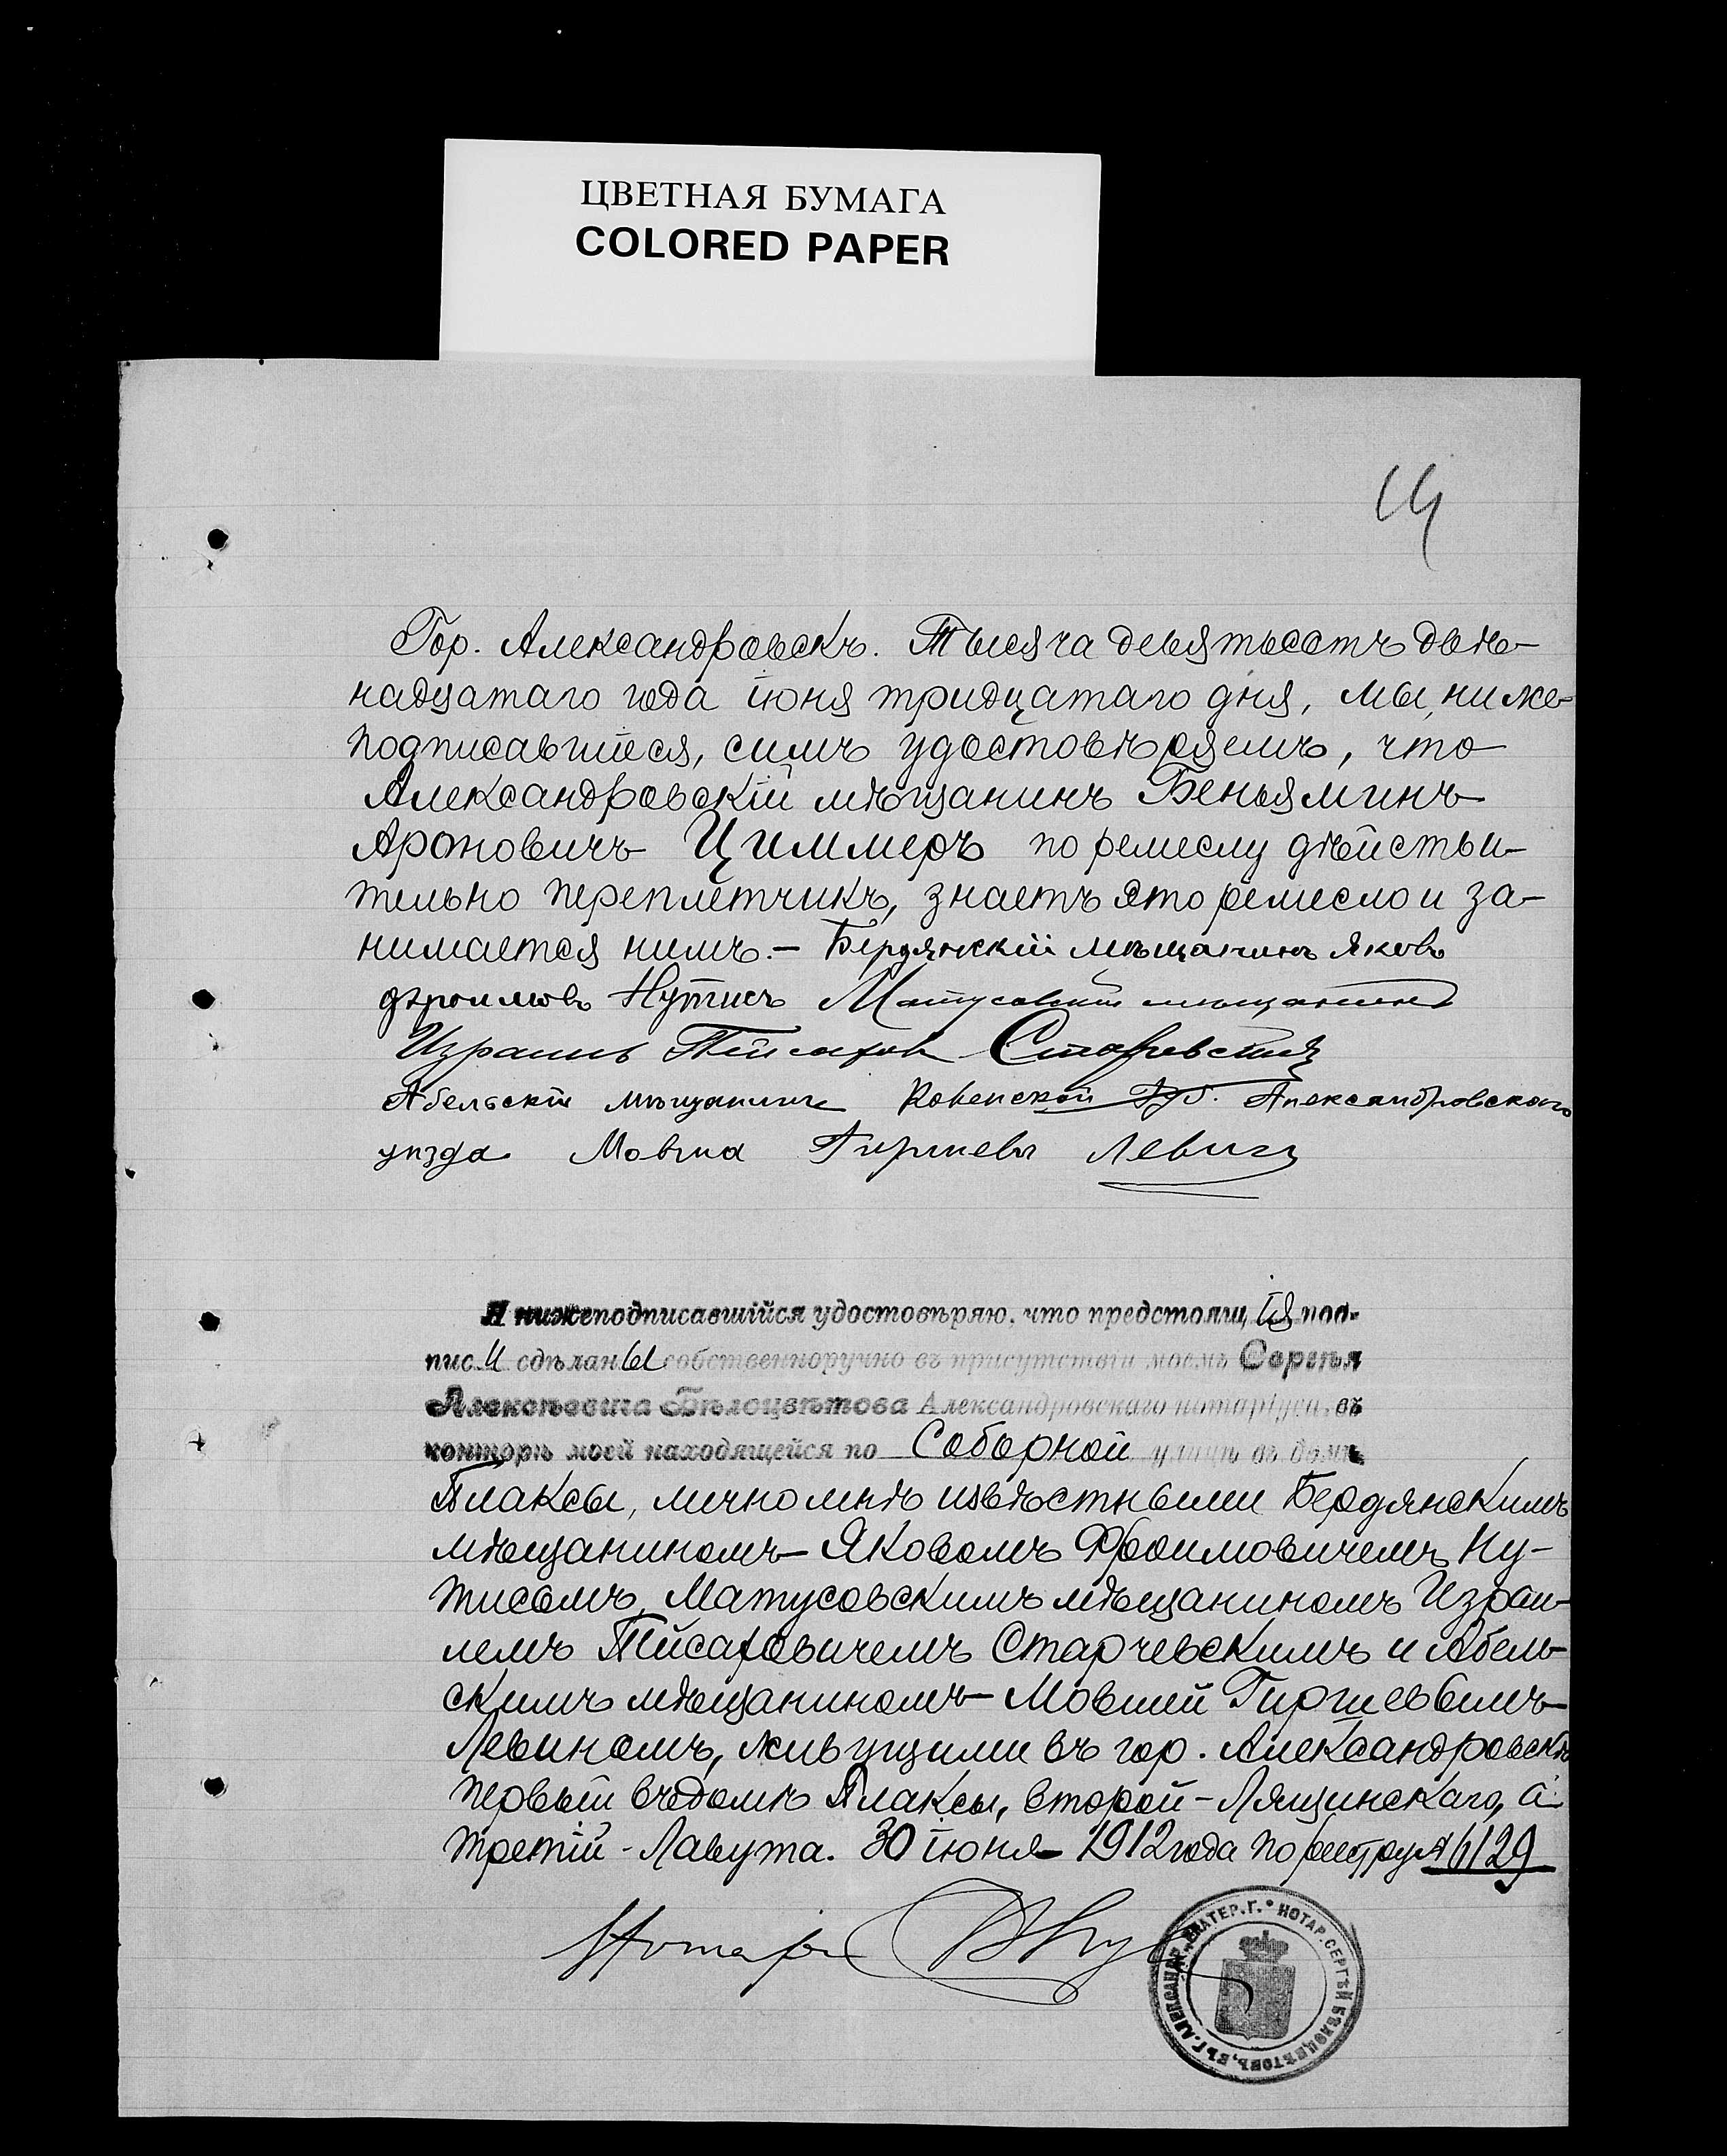 ЦВЕТНАЯ БУМАГА
COLORED PAPER
14
Гор. Александровскъ. Тысяча девятьсотъ двѣ-
надцатаго года іюня тридцатаго дня, мы, ниже-
подписавшіеся, симъ удостовѣряемъ, что
Александровскій мѣщанинъ Беньяминъ
Ароновичъ Циммеръ по ремеслу дѣйстви-
тельно переплетчикъ, знаетъ это ремесло и за-
нимается нимъ.- Бердянскій мѣщанинъ Яковъ
Фроимовъ Нутисъ Матусовскій мѣщанинъ
Израиль Пейсахов Старчевскій
Абельскій мѣщанинъ Ковенской Губ. Александровскаго
уѣзда Мовша Гиршевъ Левинъ
Я нижеподписавшійся удостовѣряю, что предстоящія под-
писи сдѣланы собственноручно въ присутствіи моемъ Сергѣя
Алексѣевича Бѣлоцвѣтова Александровскаго нотаріуса, въ
конторѣ моей находящейся по Соборной улицѣ въ домѣ
Плаксы, лично мнѣ извѣстными Бердянскимъ
мѣщаниномъ Яковомъ Фроимовичемъ Ну-
тисомъ, Матусовскимъ мѣщаниномъ Израи-
лемъ Пейсаховичемъ Старчевскимъ и Абель-
скимъ мѣщаниномъ Мовшей Гиршевымъ
Левиномъ, живущими въ гор. Александровскѣ
первый въ домѣ Плаксы, второй - Лящинскаго, а
третій - Лавута. 30 іюня 1912 года по реестру № 6129
Нотаріусъ
НОТАР. СЕРГѢЙ БѢЛОЦВѢТОВЪ, ВЪ Г. АЛЕКСАНДР. ЕКАТЕР. Г.